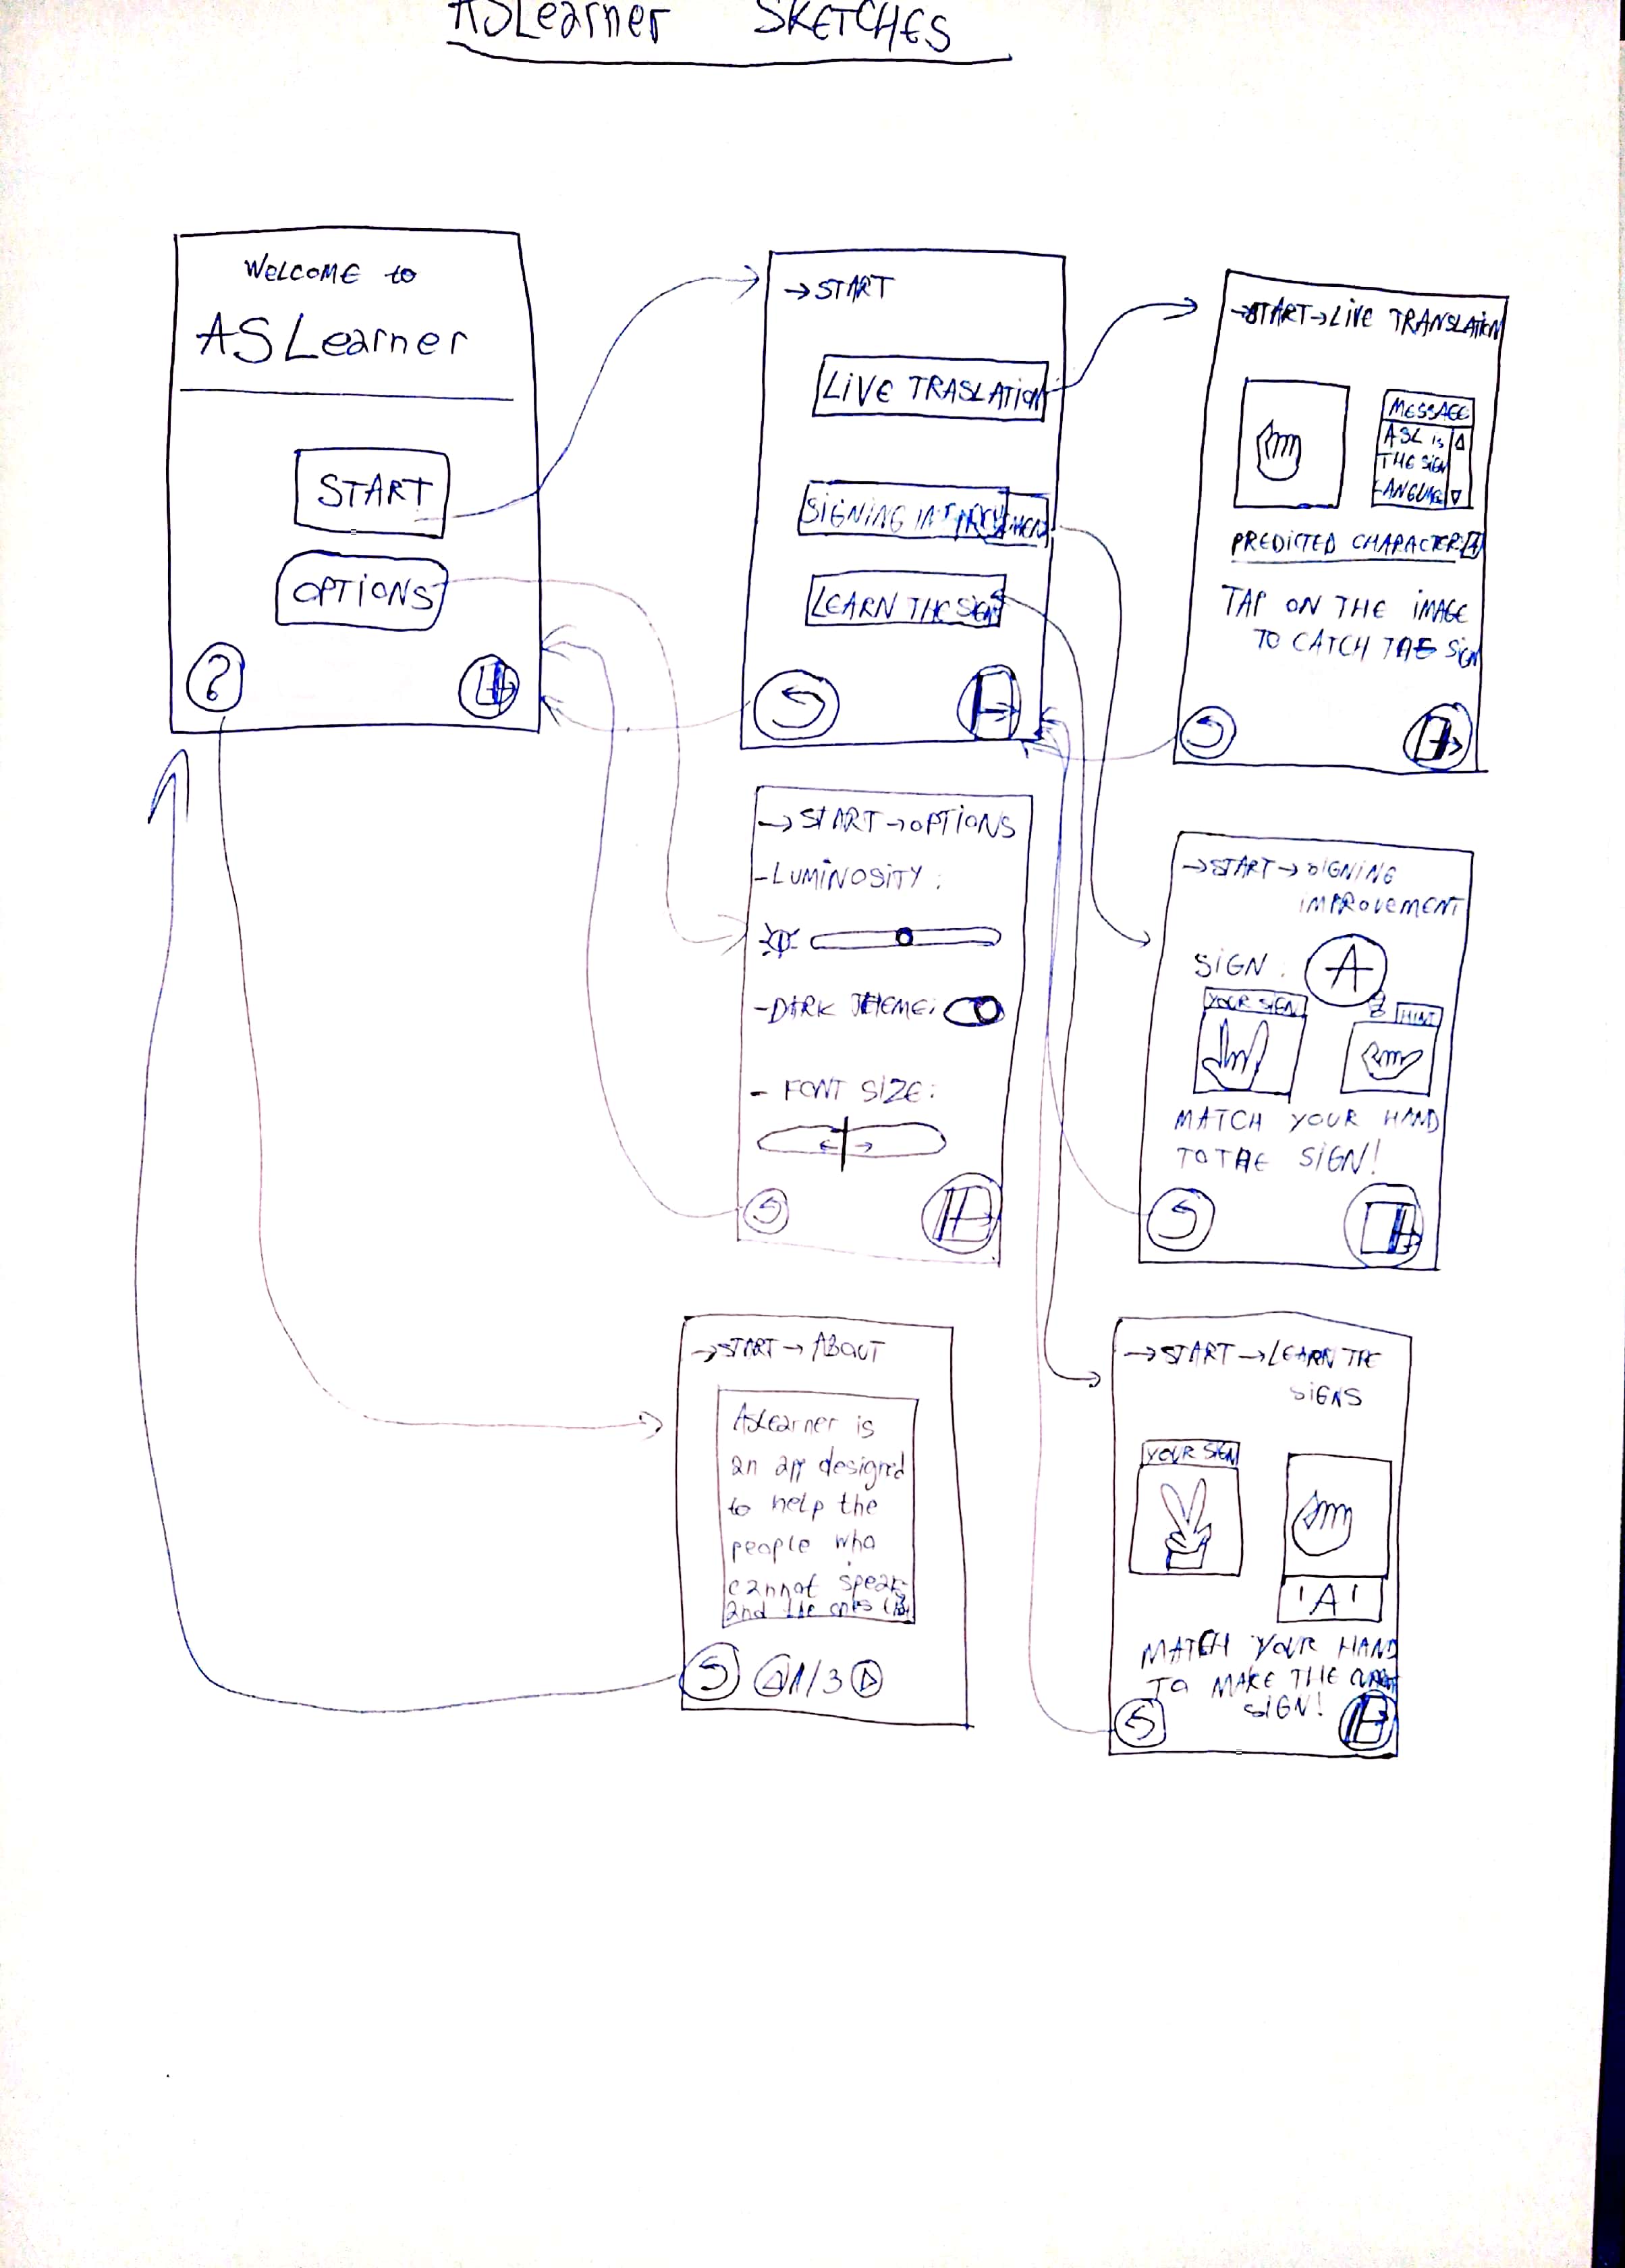 ASLearner SKETCHES
WELCOME to
ASLearner
START
OPTIONS
?
→START
LIVE TRASLATION
SIGNING
LEARN THE SIGN
→START→LIVE TRANSLATION
MESSAGE
ASL is
THE SIGN
LANGUAGE
PREDICTED CHARACTER: A
TAP ON THE IMAGE
TO CATCH THE SIGN
→START→OPTIONS
-LUMINOSITY:
-DARK THEME:
- FONT SIZE:
→START→SIGNING
IMPROVEMENT
SIGN: A
YOUR SIGN
HINT
MATCH YOUR HAND
TO THE SIGN!
→START→ABOUT
ASLearner is
an app designed
to help the
people who
cannot speak
and the ones
1/3
→START→LEARN THE
SIGNS
YOUR SIGN
'A'
MATCH YOUR HAND
TO MAKE THE
SIGN!